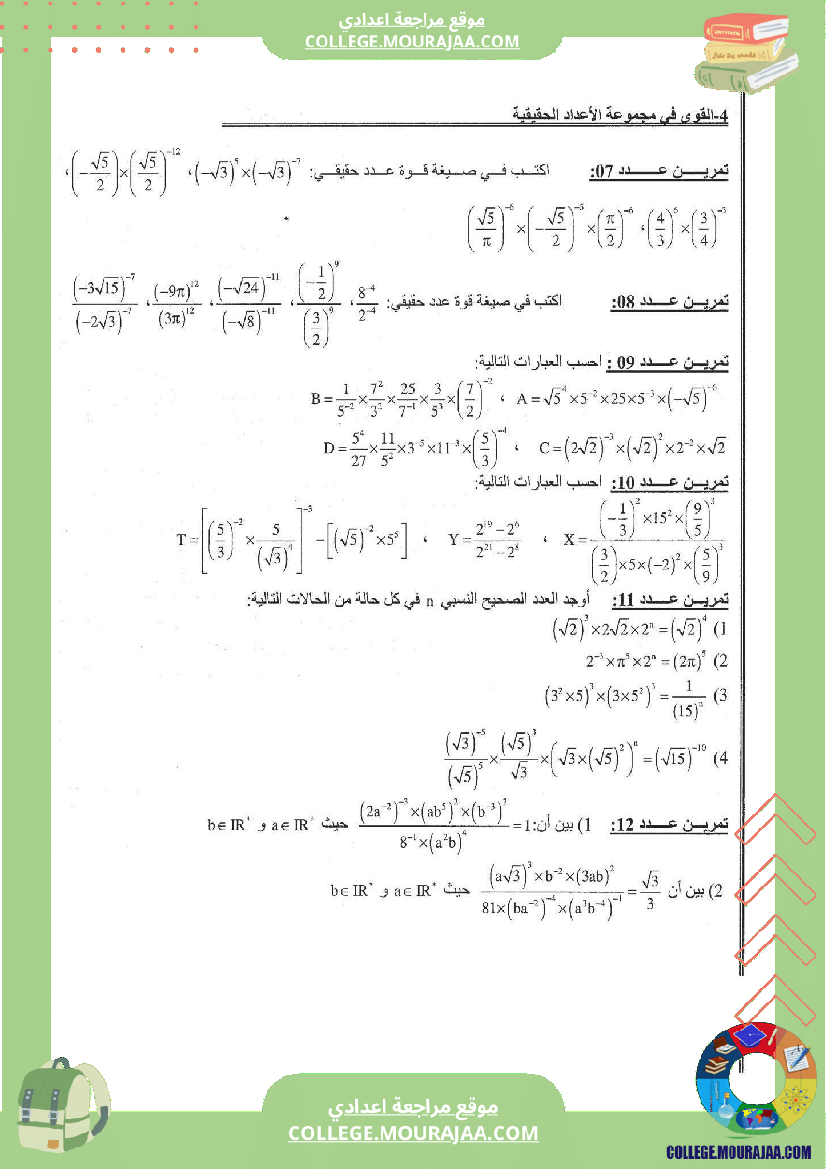 موقع مراجعة اعدادي
COLLEGE.MOURAJAA.COM
4-القوى في مجموعة الأعداد الحقيقية
تمريــن عــــدد 07: اكتــب فــي صــيغة قــوة عــدد حقيقــي: (-√3)^5×(-√3)^-7 ، (-√5/2)×(√5/2)^-12 ،
(4/3)^6×(3/4)^-3 ، (√5/π)^-6×(-√5/2)^-5×(π/2)^-6
تمريــن عــــدد 08: اكتب في صيغة قوة عدد حقيقي: 8^-4/2^-4 ، (-1/2)^9/(3/2)^9 ، (-√24)^-11/(-√8)^-11 ، (-9π)^12/(3π)^12 ، (-3√15)^-7/(-2√3)^-7
تمريــن عــــدد 09 : احسب العبارات التالية:
A=√5^4×5^-2×25×5^-3×(-√5)^-6 ، B=1/5^-2×7^2/3^2×25/7^-1×3/5^3×(7/2)^-2
C=(2√2)^-3×(√2)^2×2^-2×√2 ، D=5^4/27×11/5^2×3^-5×11^-3×(5/3)^-4
تمريــن عــــدد 10: احسب العبارات التالية:
X=((-1/3)^2×15^2×(9/5)^3)/((3/2)×5×(-2)^2×(5/9)^3) ، Y=(2^19-2^6)/(2^21-2^8) ، T=[(5/3)^-2×5/(√3)^4]^-3-[(√5)^-2×5^5]
تمريــن عــــدد 11: أوجد العدد الصحيح النسبي n في كل حالة من الحالات التالية:
1) (√2)^3×2√2×2^n=(√2)^4
2) 2^-3×π^5×2^n=(2π)^5
3) (3^2×5)^3×(3×5^2)^3=1/(15)^n
4) (√3)^-5/(√5)^5×(√5)^3/√3×(√3×(√5)^2)^n=(√15)^-10
تمريــن عــــدد 12: 1) بين أن: ((2a^-2)^-3×(ab^5)^2×(b^-3)^2)/(8^-1×(a^2b)^4)=1 حيث a∈IR^* و b∈IR^*
2) بين أن ((a√3)^3×b^-2×(3ab)^2)/(81×(ba^-2)^-4×(a^3b^-4)^-1)=√3/3 حيث a∈IR^* و b∈IR^*
موقع مراجعة اعدادي
COLLEGE.MOURAJAA.COM
COLLEGE.MOURAJAA.COM